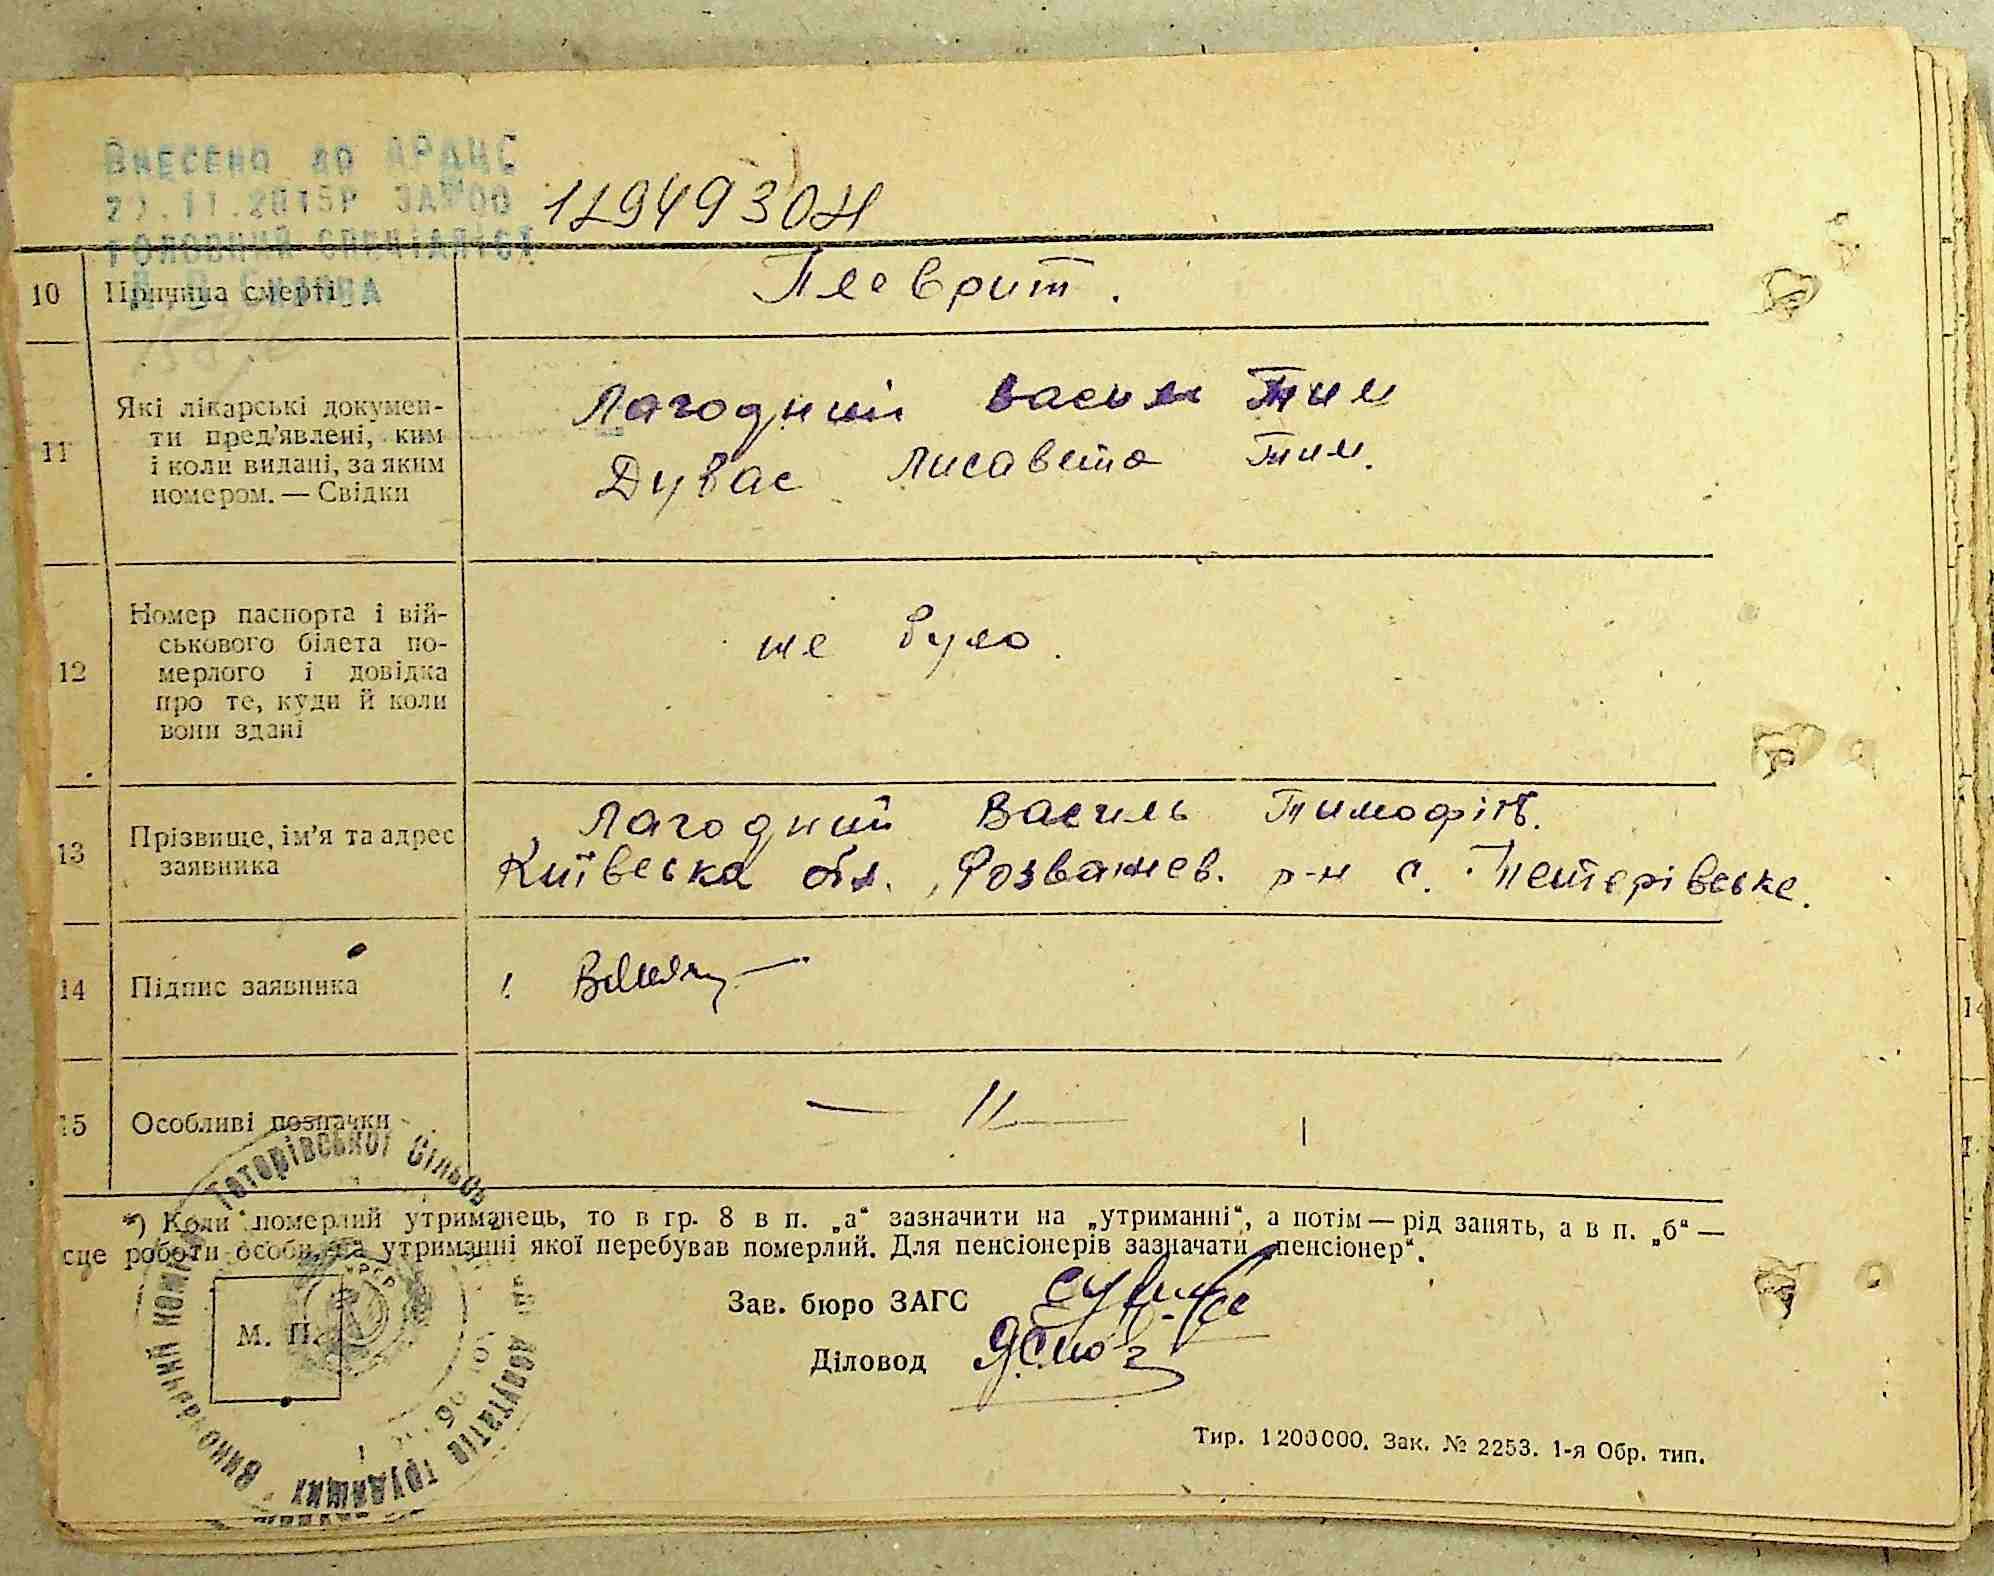 Внесено до ДРАЦС
27.11.2015р ЗА №00
12949304
головний спеціаліст
10 Причина смерті Плеврит.
11 Які лікарські докумен-
ти пред'явлені, ким
і коли видані, за яким
номером. — Свідки
Лагодний Василь Тим
Дувас Лисавета Тим.
12 Номер паспорта і вій-
ськового білета по-
мерлого і довідка
про те, куди й коли
вони здані
не було.
13 Прізвище, ім'я та адрес
заявника
Лагодний Василь Тимофів.
Київська обл. Розважев. р-н с. Тетерівське.
14 Підпис заявника
15 Особливі позначки — 11 —
*) Коли померлий утриманець, то в гр. 8 в п. „а“ зазначити на „утриманні“, а потім — рід занять, а в п. „б“ —
сце роботи особи, на утриманні якої перебував померлий. Для пенсіонерів зазначати „пенсіонер“.
Зав. бюро ЗАГС
М. П.
Діловод
Виконавчий комітет Тетерівської Сільсь депутатів трудящих
УРСР
Тир. 1200000. Зак. № 2253. 1-я Обр. тип.